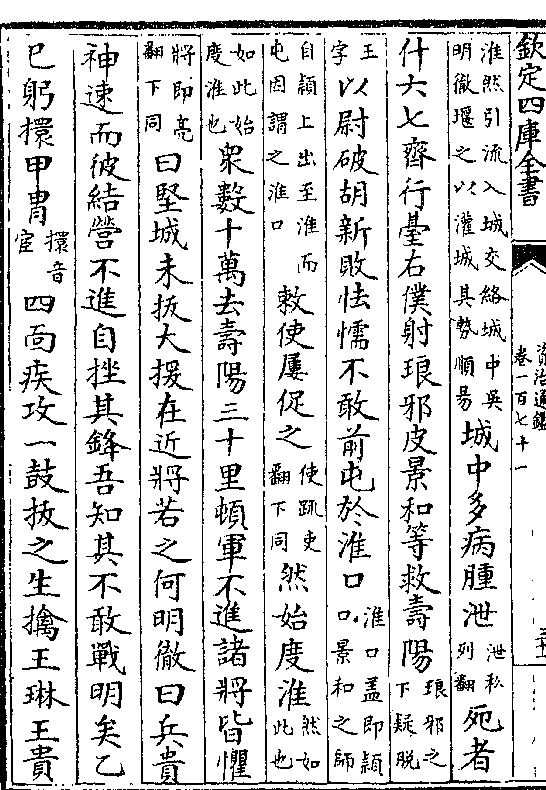 欽定四庫全書
資治通鑑
卷一百七十一
淮然引流入城交絡城中吳
明徹堰之以灌城其勢順易
城中多病腫泄
泄私
列翻
死者
什六七齊行臺右僕射琅邪皮景和等救壽陽
琅邪之
下疑脫
王
字
以尉破胡新敗怯懦不敢前屯於淮口
淮口蓋即潁
口景和之師
自潁上出至淮而
屯因謂之淮口
敕使屢促之
使疏吏
翻下同
然始度淮
然如
此也
如此始
度淮也
衆數十萬去壽陽三十里頓軍不進諸將皆懼
將即亮
翻下同
曰堅城未拔大援在近將若之何明徹曰兵貴
神速而彼結營不進自挫其鋒吾知其不敢戰明矣乙
巳躬擐甲冑
擐音
宦
四面疾攻一鼓拔之生擒王琳王貴